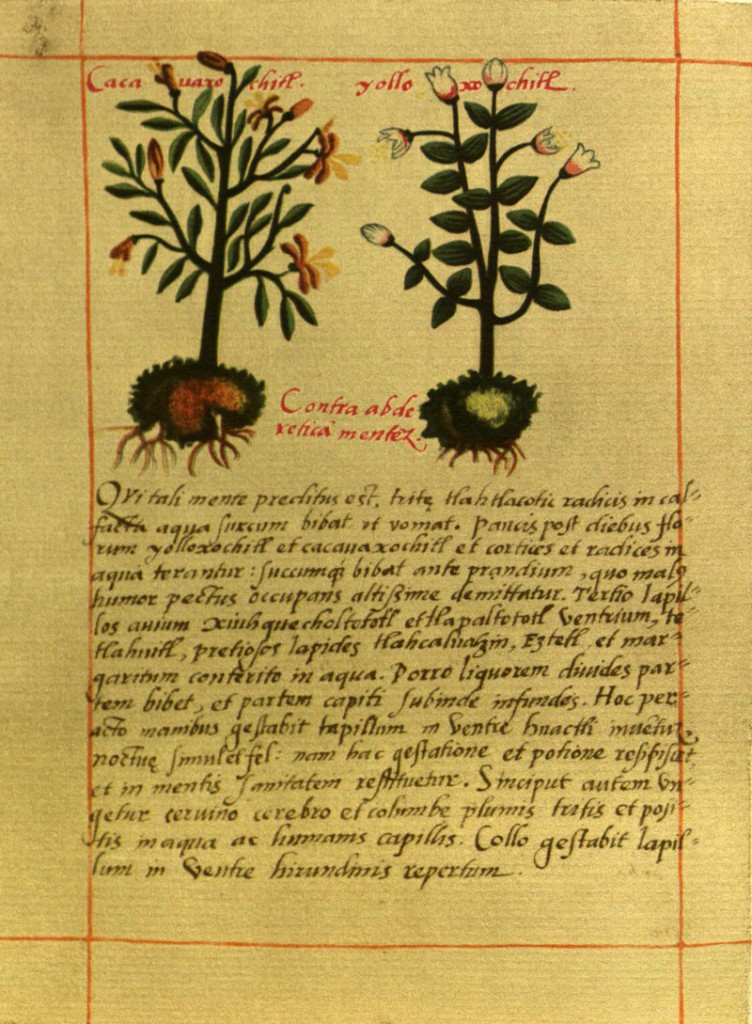 Cacauaxochitl. yolloxochitl.
Contra abde⸗
reticā mentē.
Qvi tali mente preditus est, tritę tlahtlacotic radicis in cal⸗
facta aqua sucum bibat vt vomat. Paucis post diebus flo⸗
rum yolloxochitl et cacauaxochitl et cortices et radices in
aqua terantur: succumq; bibat ante prandium, quo malꝯ
humor pectus occupans altissime demittatur. Tertio lapil⸗
los auium xiuhquecholtototl et tlapaltototl ventrium, te⸗
tlahuitl, pretiosos lapides tlahcalhuatzin, Eztetl, et mar⸗
garitum conterito in aqua. Porro liquorem diuides par⸗
tem bibet, et partem capiti subinde infundes. Hoc per⸗
acto manibus gestabit lapillum in ventre huactli
noctuę simul et fel: nam hac gestatione et potione resipiscet
et in mentis sanitatem restituetur. Sinciput autem vn⸗
getur ceruino cerebro et columbe plumis tritis et posi⸗
tis in aqua ac humanis capillis. Collo gestabit lapil⸗
lum in ventre hirundinis repertum.